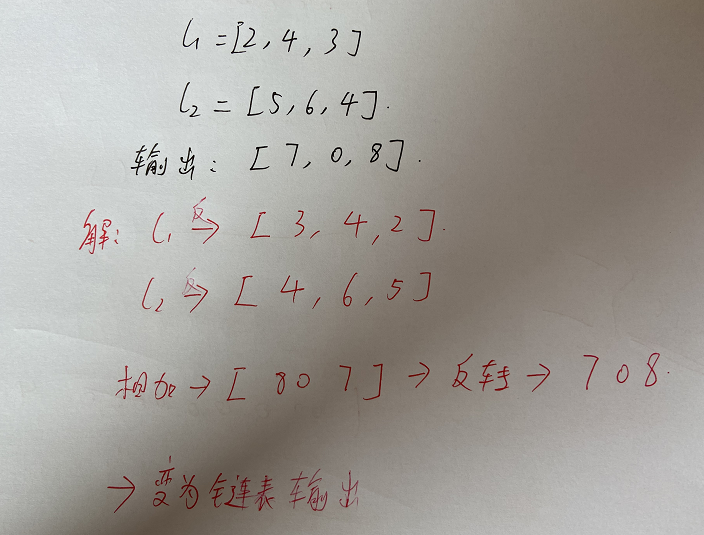 l₁ = [2, 4, 3]
l₂ = [5, 6, 4].
输出: [7, 0, 8].
解: l₁ 反→ [3, 4, 2].
l₂ 反→ [4, 6, 5]
相加 → [8 0 7] → 反转 → 7 0 8.
→ 变为链表输出